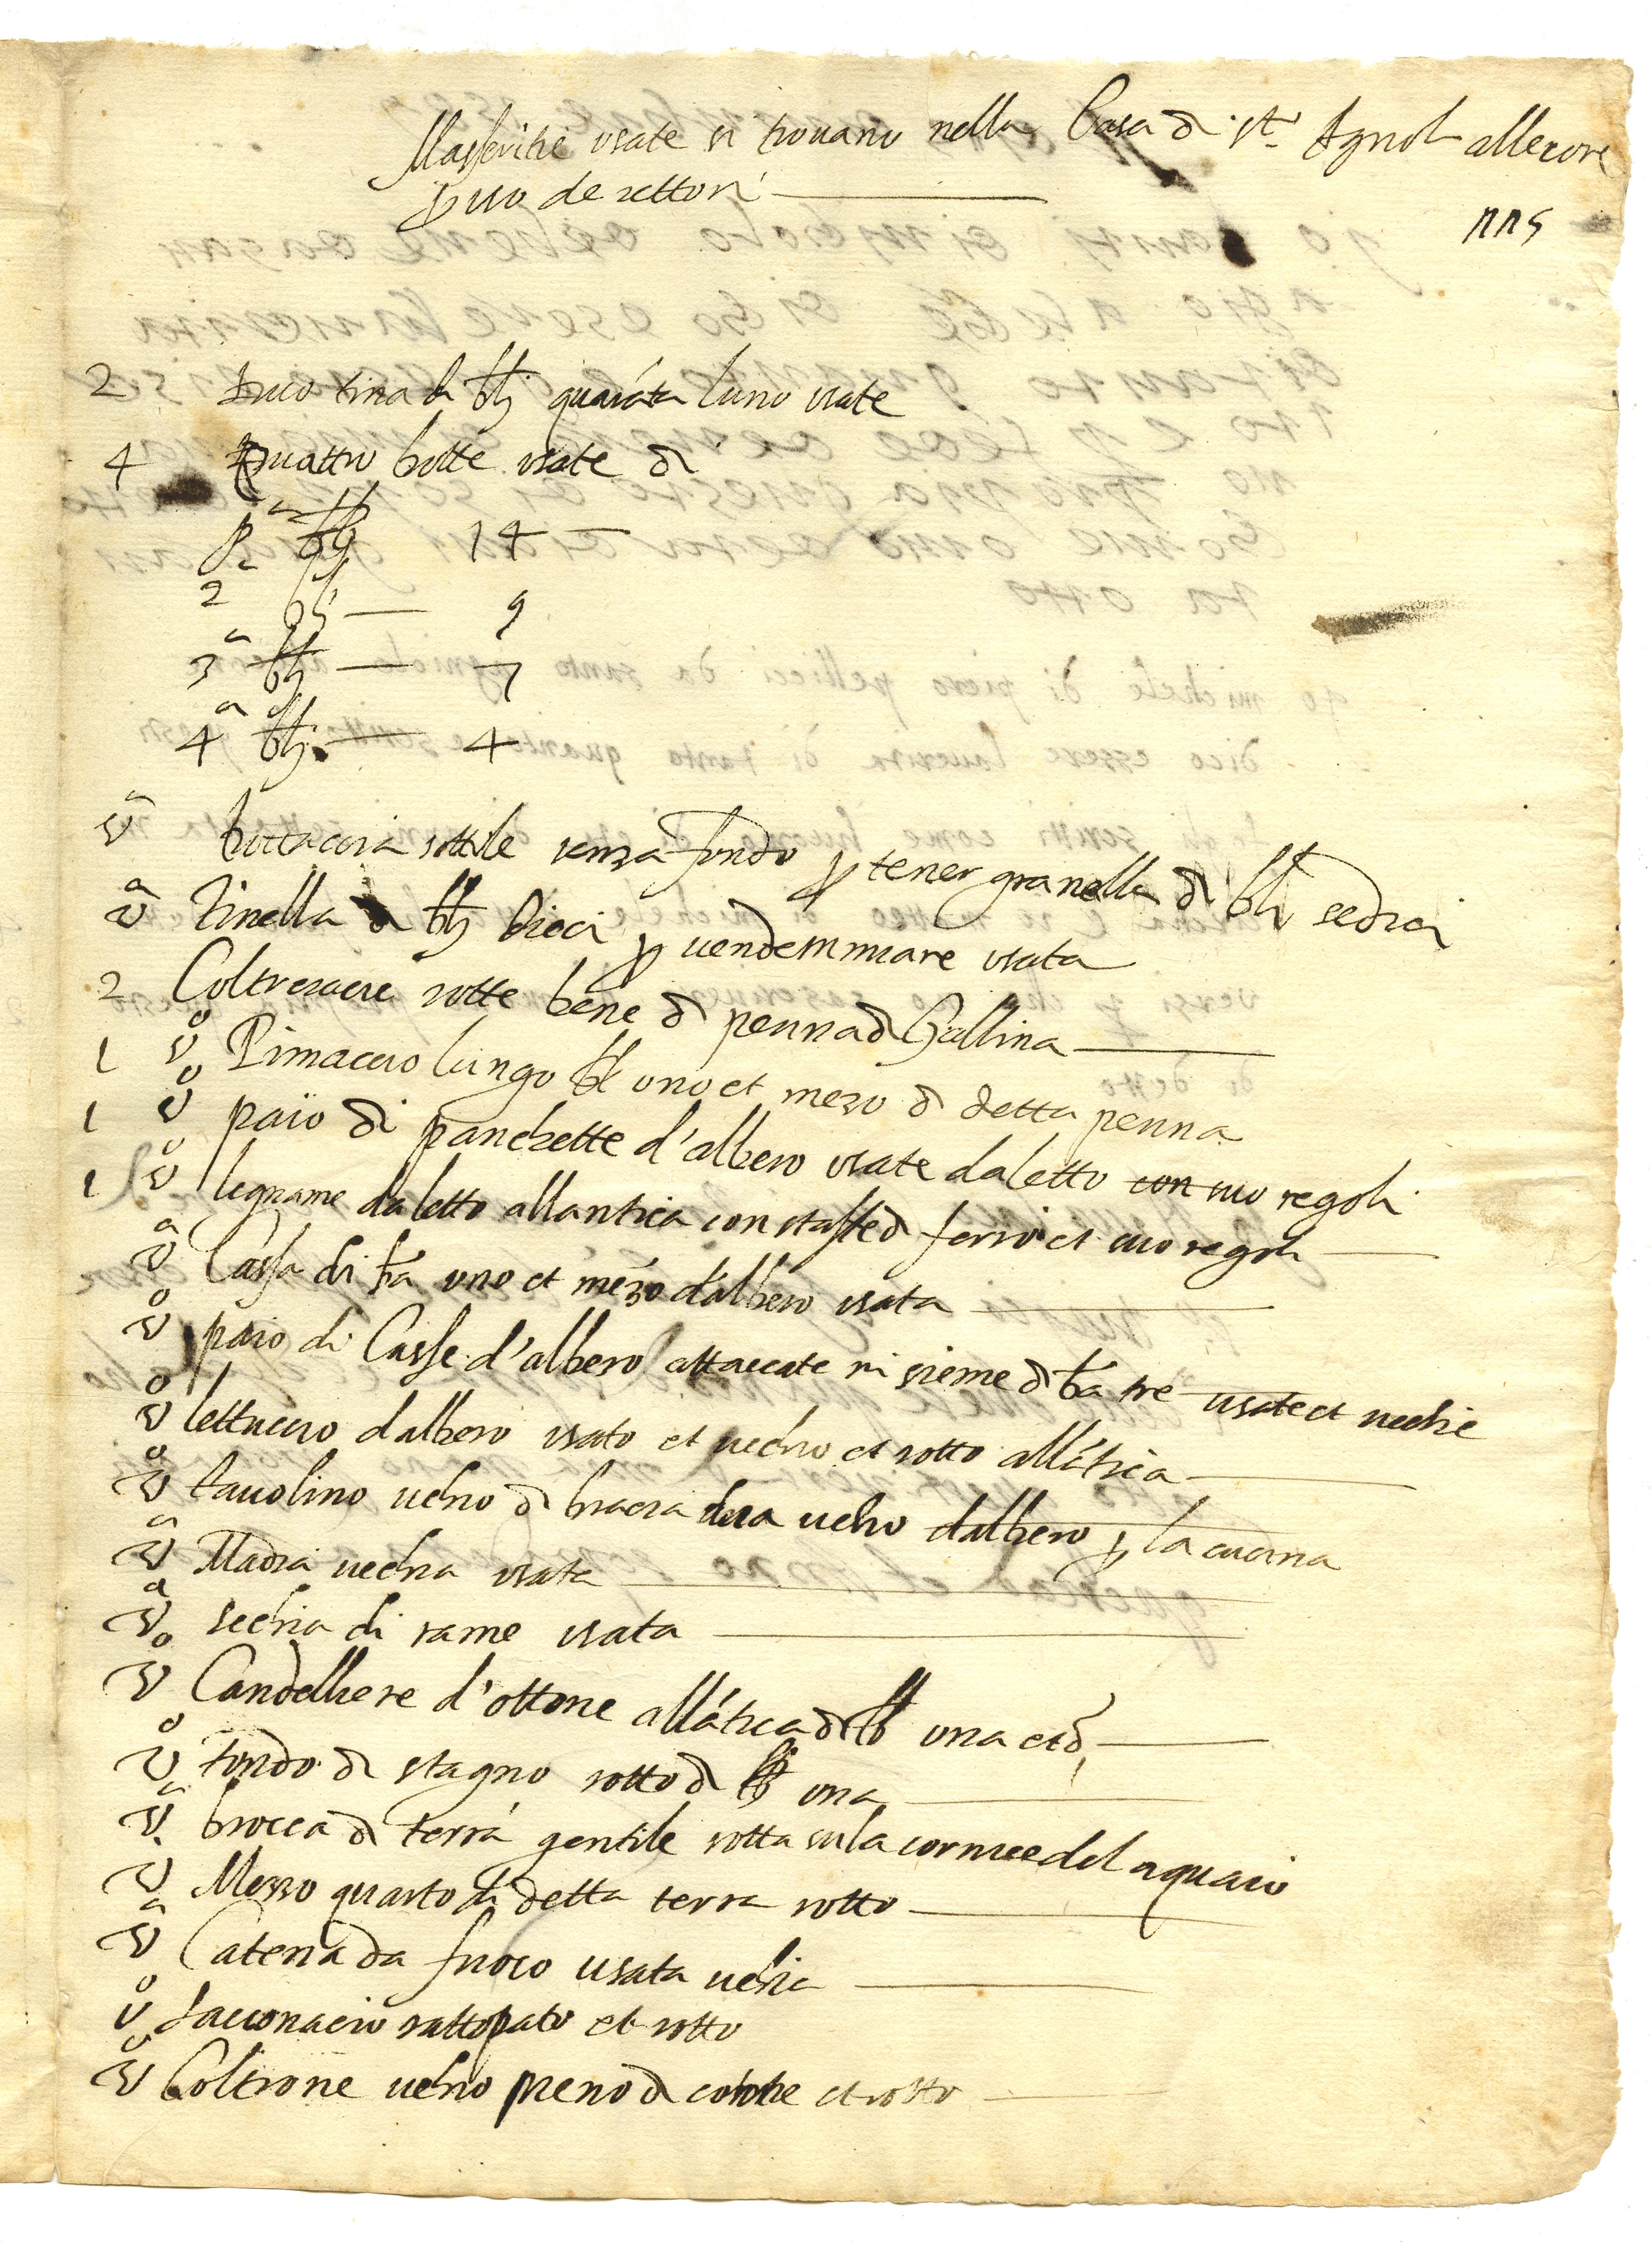 Masseritie usate si trovano nella Casa di Sto Agnolo allecore
p uso de rettori
nns
2 Duo tina di bli quarāta luno usate
4 Quattro botte usate di
pa bli 14
2 bli 9
3a bli 7
4a bli 4
va bottaccia sottile senza fondo p tener granella di bli sedici
va Tinella di bli dieci p vendemmiare usata
2 Coltricacce rotte bene di penna di Gallina
1 vo Pimaccio lungo uno et mezo di detta penna
1 vo paio di panchette d'albero usate da letto con suo regoli
1 vo legname da letto allantica con staffe di ferro et suo regoli
va Cassa di ba uno et mezo d'albero usata
vo paio di Casse d'albero attaccate insieme di ba tre usate et vechie
vo lettuccio dalbero usato et vechio et rotto allātica
vo tavolino vechio di bracia dua vechio dalbero p la cucina
va Madia vechia usata
va sechia di rame usata
vo Candelliere d'ottone allātica di lb una et
vo tondo di stagno rotto di lb una
va brocca di terra gentile rotta sula cornice del aquaio
v Mezzo quarto di detta terra rotto
va Catena da fuoco usata vechia
vo sacconacio rattopato et rotto
vo Coltrone vechio pieno di et rotto